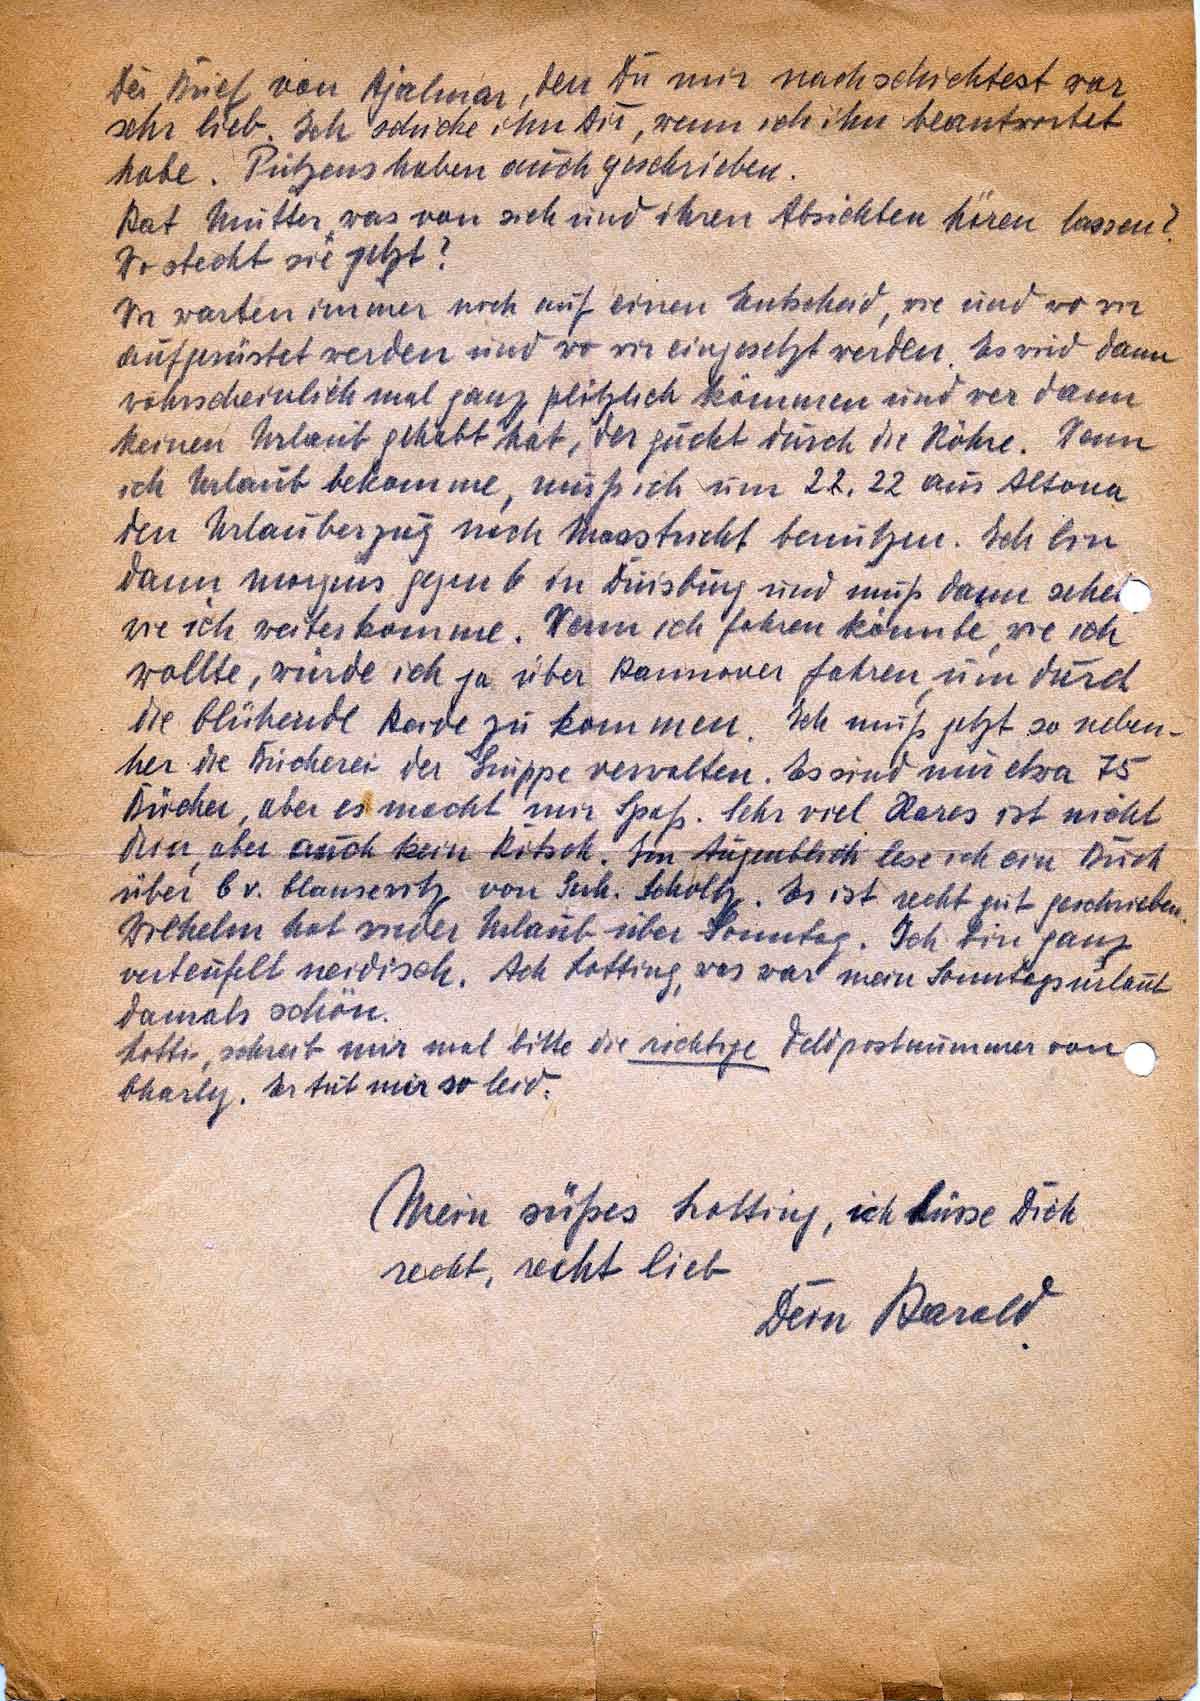 Der Brief von Hjalmar, den Du mir nachschicktest war
sehr lieb. Ich schicke ihn Dir, wenn ich ihn beantwortet
habe. Putzens haben auch geschrieben.
Hat Mutter was von sich und ihren Absichten hören lassen?
Wo steckt sie jetzt?
Wir warten immer noch auf einen Entscheid, wie und wo wir
aufgerüstet werden und wo wir eingesetzt werden. Es wird dann
wahrscheinlich mal ganz plötzlich kommen und wer dann
keinen Urlaub gehabt hat, der guckt durch die Röhre. Wenn
ich Urlaub bekomme, muß ich um 22.22 aus Altona
den Urlauberzug nach Maastricht benutzen. Ich bin
dann morgens gegen 6 in Duisburg und muß dann sehen
wie ich weiterkomme. Wenn ich fahren könnte, wie ich
wollte, würde ich ja über Hannover fahren, um durch
die blühende Heide zu kommen. Ich muß jetzt so neben-
her die Bücherei der Gruppe verwalten. Es sind nur etwa 75
Bücher, aber es macht mir Spaß. Sehr viel Rares ist nicht
drin, aber auch kein Kitsch. Im Augenblick lese ich ein Buch
über C v. Clausewitz von Gerh. Scholtz. Es ist recht gut geschrieben.
Wilhelm hat wieder Urlaub über Sonntag. Ich bin ganz
verteufelt neidisch. Ach Lotting, was war mein Sonntagsurlaub
damals schön.
Lotti, schreib mir mal bitte die richtige Feldpostnummer von
Charly. Er tut mir so leid.
Mein süßes Lotting, ich küsse Dich
recht, recht lieb
Dein Harald.